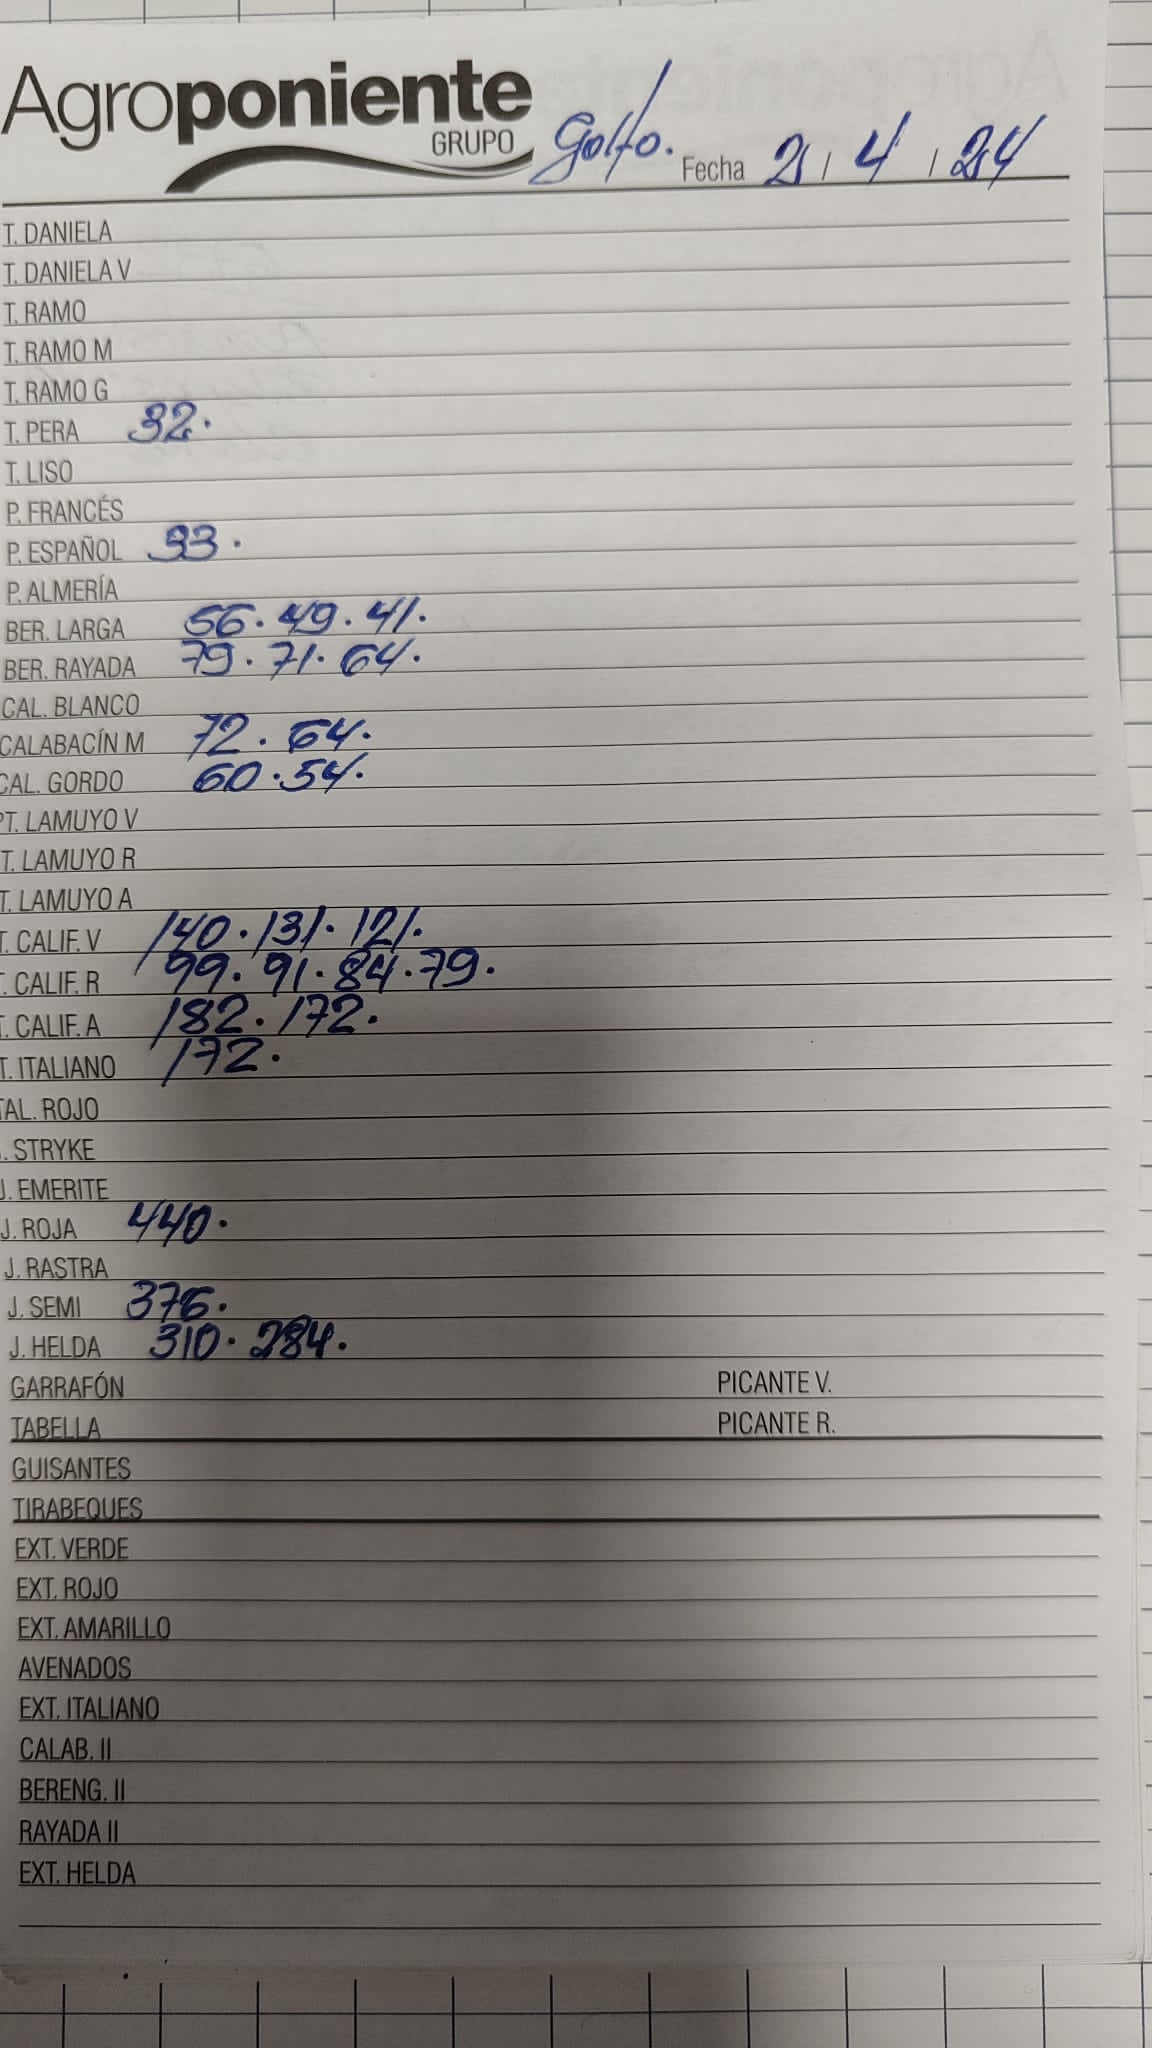 Agroponiente
GRUPO Golfo. Fecha 2 / 4 / 24
T. DANIELA
T. DANIELA V
T. RAMO
T. RAMO M
T. RAMO G
T. PERA 32.
T. LISO
P. FRANCÉS
P. ESPAÑOL 33.
P. ALMERÍA
BER. LARGA 56. 49. 41.
BER. RAYADA 79. 71. 64.
CAL. BLANCO
CALABACÍN M 72. 64.
CAL. GORDO 60. 54.
PT. LAMUYO V
T. LAMUYO R
T. LAMUYO A
T. CALIF. V 140. 131. 121.
T. CALIF. R 99. 91. 84. 79.
T. CALIF. A 182. 172.
T. ITALIANO 172.
TAL. ROJO
. STRYKE
J. EMERITE
J. ROJA 440.
J. RASTRA
J. SEMI 376.
J. HELDA 310. 284.
GARRAFÓN PICANTE V.
TABELLA PICANTE R.
GUISANTES
TIRABEQUES
EXT. VERDE
EXT. ROJO
EXT. AMARILLO
AVENADOS
EXT. ITALIANO
CALAB. II
BERENG. II
RAYADA II
EXT. HELDA